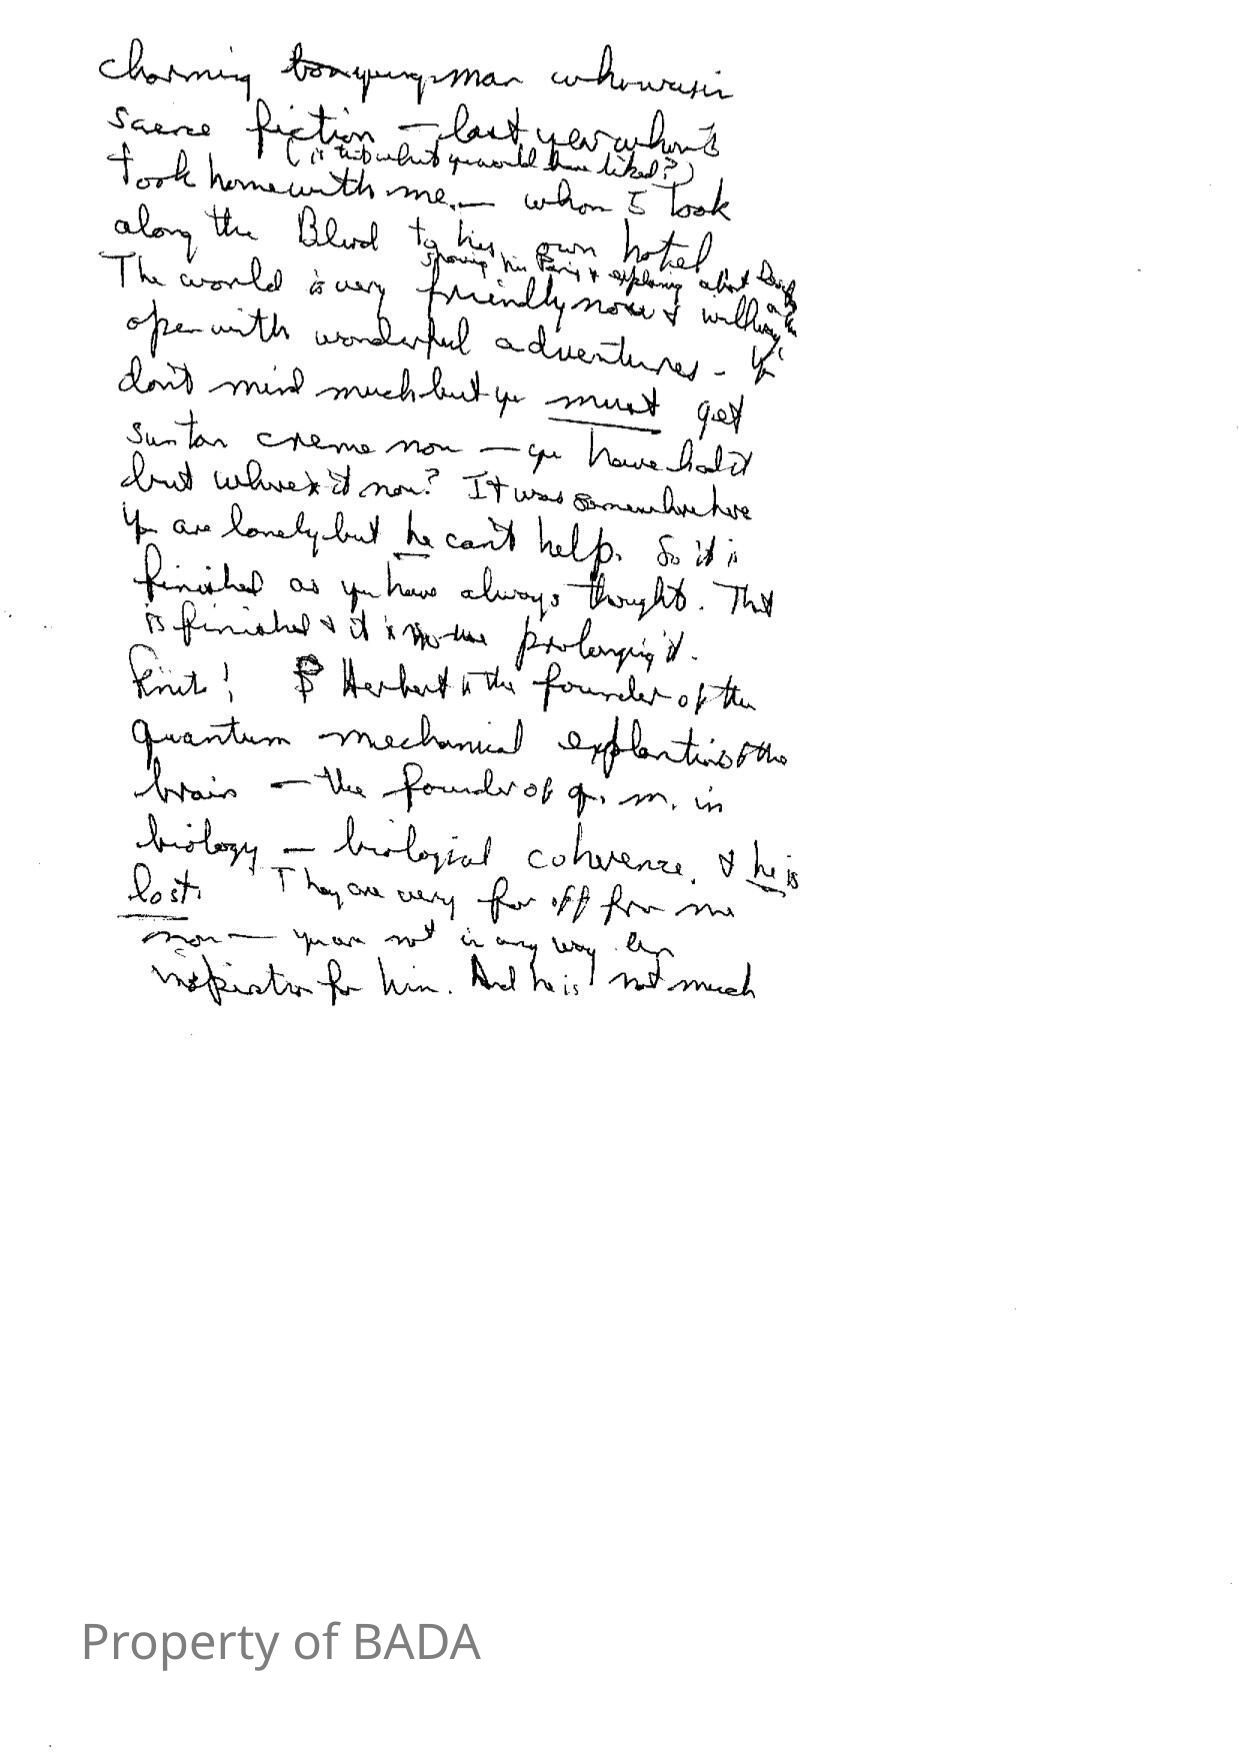 charming young man who was in
science fiction — last year whom I
(is that what you would have liked?)
took home with me. — whom I took
along the Blvd to his own hotel
showing him Paris & explaining about
The world is very friendly now &
open with wonderful adventures - You
don't mind much but you must get
sun tan creme now — you have had it
but where is it now? It was somewhere here
You are lonely but he can't help. So it is
finished as you have always thought. That
is finished & it is no use prolonging it.
Finito! Herbert is the founder of the
quantum mechanical explantion of the
brain — the founder of q. m. in
biology — biological coherence. & he is
lost. They are very far off from me
now — you are not in any way an
inspiration for him. And he is not much
Property of BADA